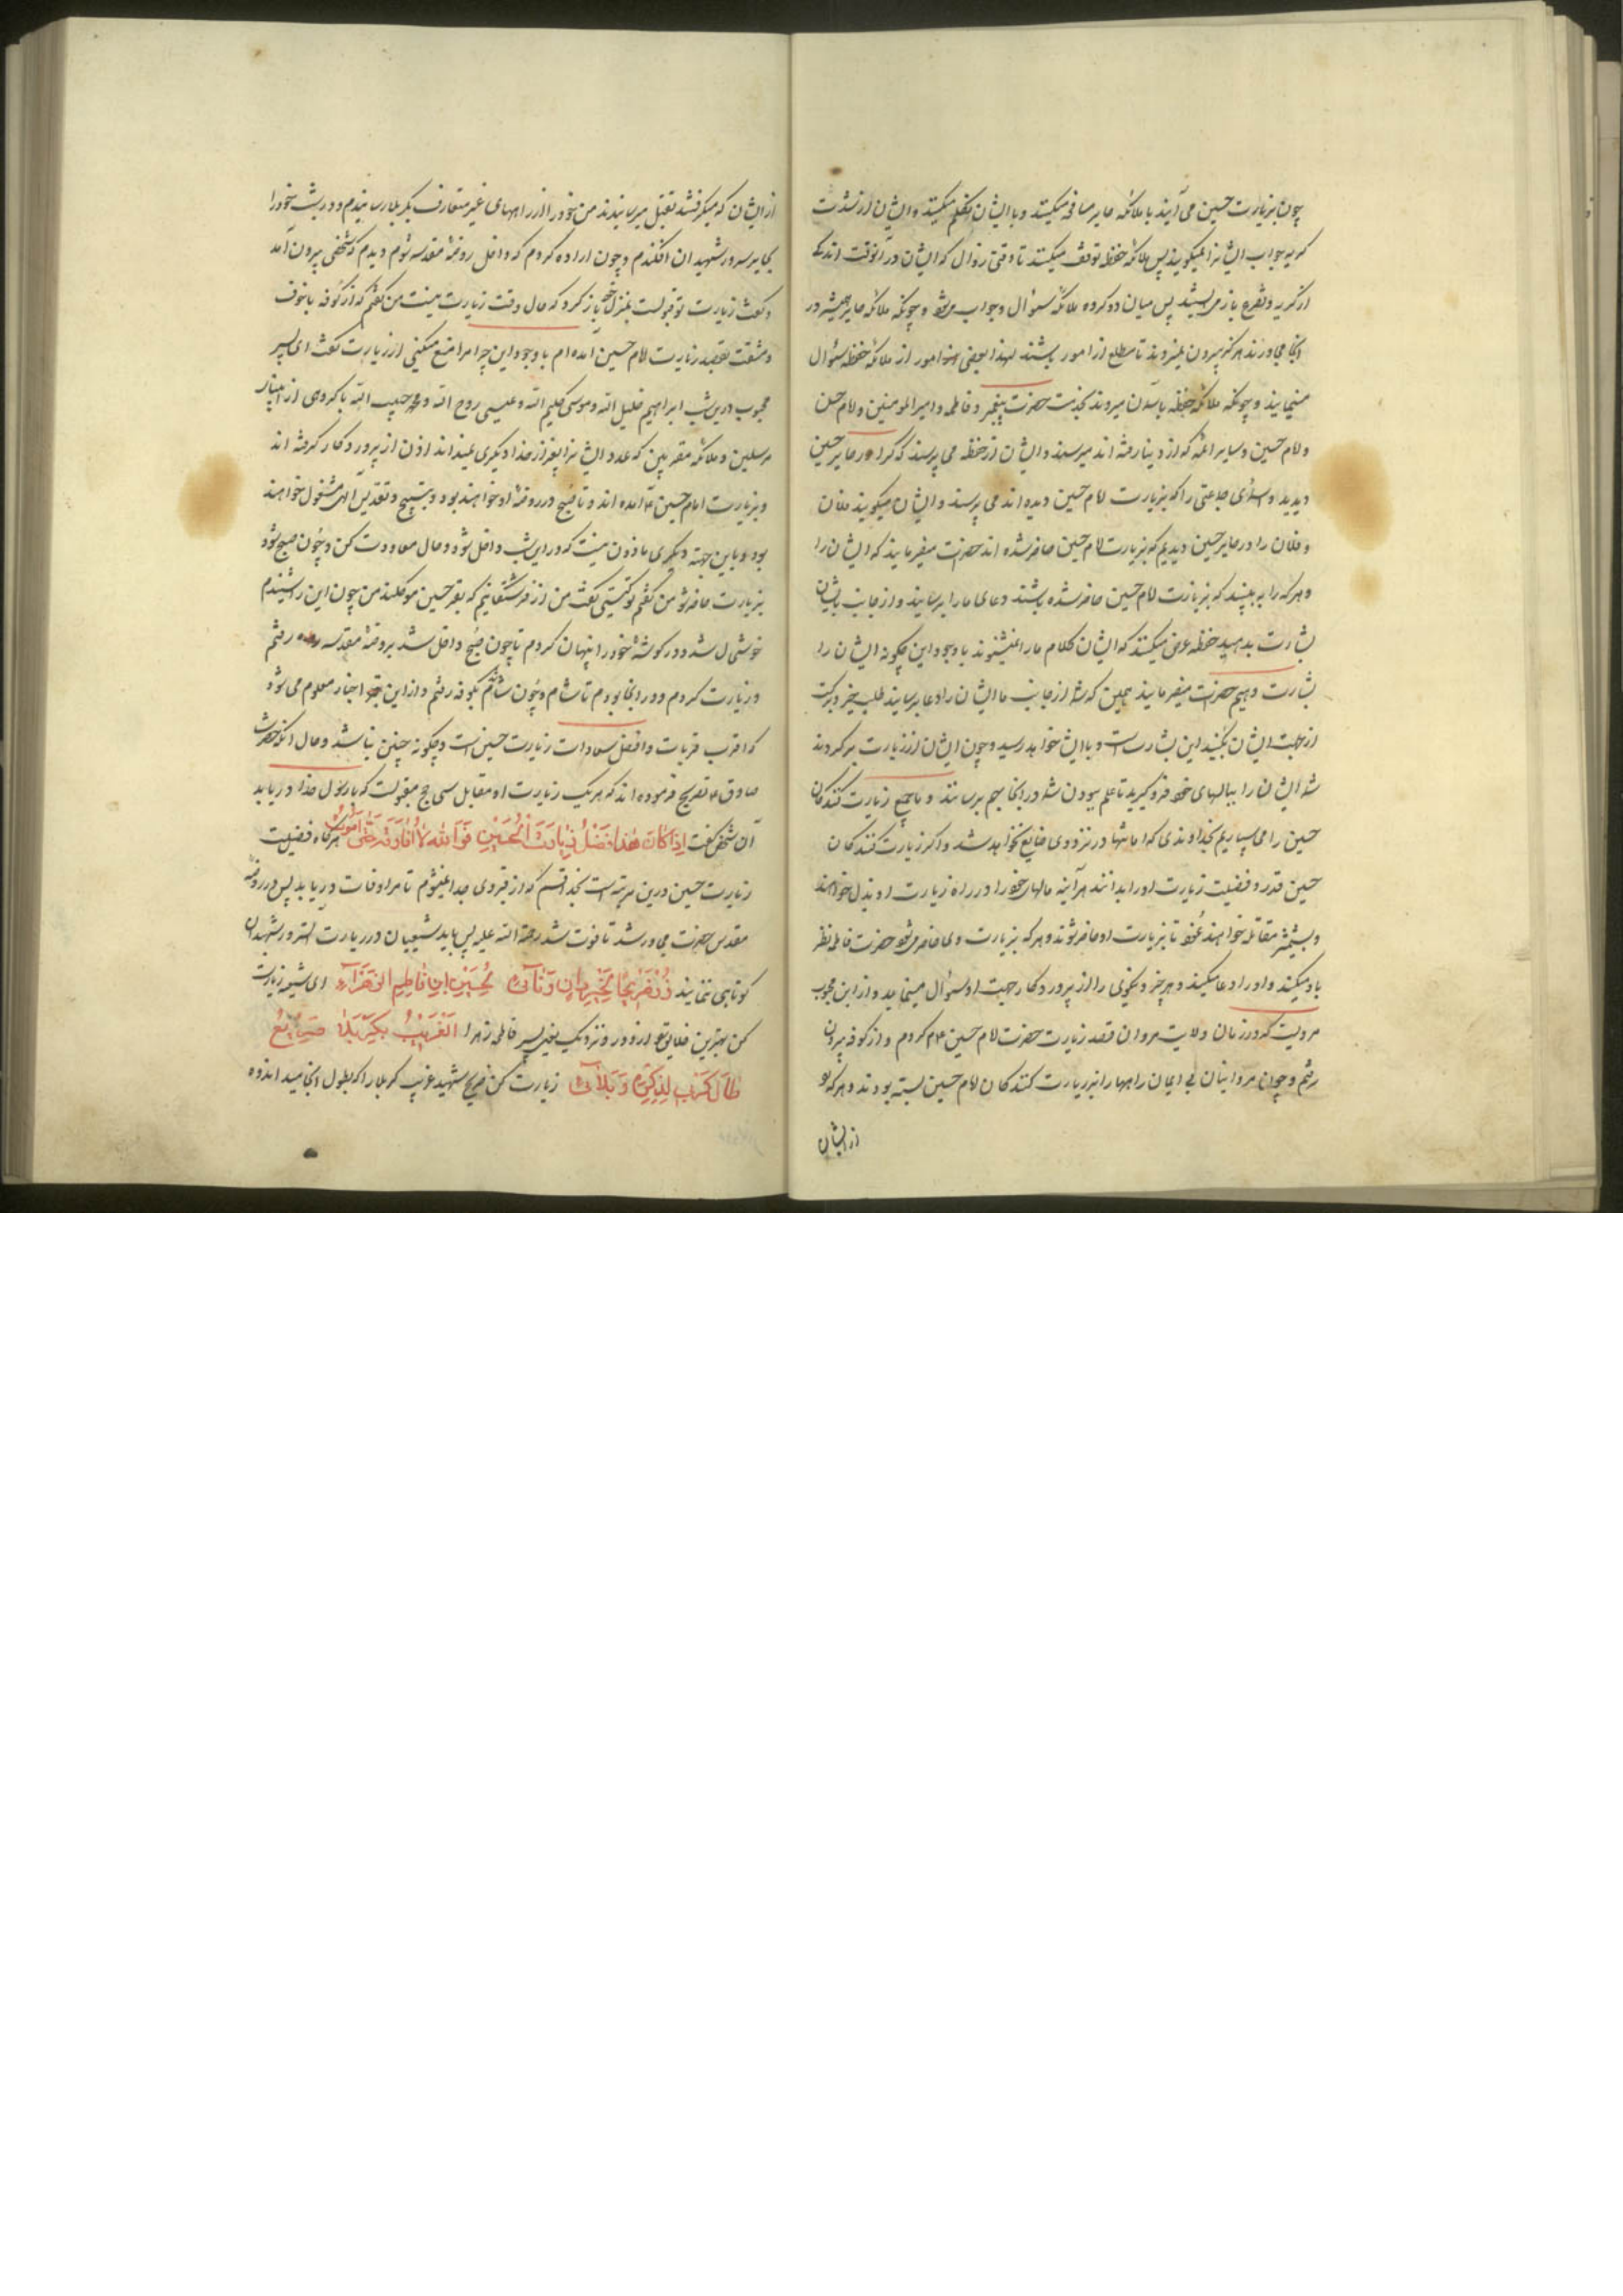 چون بزیارت حسین می آیند با ملائکه حایر مصافحه میکنند و با ایشان تکلم میکنند و ایشان از شدت
کریه جواب ایشانرا نمیکویند پس ملائکه حفظه توقف میکنند تا وقتی زوال که ایشان در آنوقت اندکی
از کریه و تضرع باز می ایستند پس میان دو کروه ملائکه سئوال و جواب میشود و چونکه ملائکه حایر همیشه در
انجا مجاورند هرکز بیرون نمیروند تا مطلع از امور باشند لهذا بعضی امور از ملائکه حفظه سئوال
مینمایند و چونکه ملائکه حفظه باسمان میروند بخدمت حضرت پیغمبر و فاطمه و امیر المومنین و امام حسن
و امام حسین و سایر ائمه که از دنیا رفته اند میرسند و ایشان از حفظه می پرسند که کرا در حایر حسین
دیدید و جماعتی را که بزیارت امام حسین دیده اند می پرسند و ایشان میکویند فلان
و فلان را در حایر حسین دیدیم که بزیارت امام حسین حاضر شده اند حضرت میفرمایند که ایشان را
و هرکه را به بینید که بزیارت امام حسین حاضر شده باشند دعای ما را برسانید و از جانب ما بایشان
بشارت بدهید حفظه عرض میکنند که ایشان کلام ما را نمیشنوند با وجود این چکونه ایشان را
بشارت دهیم حضرت میفرمایند همین که شما از جانب ما ایشان را دعا برسانید طلب خیر و برکت
از جهت ایشان بکنید این بشارتست و با ایشان خواهد رسید و چون ایشان از زیارت برکردند
شما ایشان را ببالهای خود فرو کیرید تا علم ببودن شما در انجا بهم برسانند و ما جمیع زیارت کنندکان
حسین را می سپاریم بخداوندی که امانتها در نزد وی ضایع نخواهد شد و اکر زیارت کنندکان
حسین قدر و فضیلت زیارت او را بدانند هرآینه مالهای خود را در راه زیارت او بذل خواهند
و بشمشیر مقاتله خواهند نمود تا بزیارت او حاضر شوند و هرکه بزیارت وی حاضر میشود حضرت فاطمه نظر
باو میکند و او را دعا میکند و هر خیر و نیکوئی را از پروردکار جهت او سئوال مینماید و از ابن محبوب
مرویست که در زمان ولایت مروان قصد زیارت حضرت امام حسین ع کردم و از کوفه بیرون
رفتم و چون مروانیان بی ایمان راهها را بر زیارت کنندکان امام حسین بسته بودند و هرکه
از ایشان
از ایشان که میکرفتند بقتل میرسانیدند من خود را از راههای غیر متعارف بکربلا رسانیدم و در شب خود را
بحایر سرور شهیدان افکندم و چون اراده کردم که داخل روضه مقدسه شوم دیدم که شخصی بیرون آمد
و کفت زیارت تو قبولست بمنزل خود باز کرد که حال وقت زیارت نیست من کفتم که از کوفه با خوف
و مشقت بقصد زیارت امام حسین آمده ام با وجود این چرا مرا منع میکنی از زیارت کفت ای پسر
محبوب درین شب ابراهیم خلیل الله و موسی کلیم الله و عیسی روح الله و محمد حبیب الله با کروهی از انبیاء
مرسلین و ملائکه مقربین که عدد ایشانرا بغیر از خدا دیکری نمیداند اذن از پروردکار کرفته اند
و بزیارت امام حسین ع آمده اند و تا صبح در روضه او خواهند بود و بتسبیح و تقدیس الهی مشغول خواهند
بود و باین جهة دیکری ماذون نیست که در این شب داخل شود و حال معاودت کن و چون صبح شود
بزیارت حاضر شو من کفتم تو کیستی کفت من از فرشتکانیم که بقبر حسین موکلند من چون این را شنیدم
خوشحال شده در کوشه خود را پنهان کردم تا چون صبح داخل شد بروضه مقدسه رفتم
و زیارت کردم و در انجا بودم تا شام و چون شام شد بکوفه رفتم و از این اخبار معلوم می شود
که اقرب قربات و افضل سعادات زیارت حسین است و چکونه چنین نباشد و حال آنکه حضرت
صادق ع تصریح فرموده اند که هر یک زیارت او مقابل سی حج مقبولست که با رسول خدا دریابد
آن شخص کفت اِذا کَانَ هٰذا فَضْلُ زِیارَةِ الْحُسَیْنِ فَوَاللهِ لاٰ اُفٰارِقُهُ حَتّٰی اَمُوتَ هرکاه فضیلت
زیارت حسین درین مرتبه است بخدا قسم که از قبر وی جدا نمیشوم تا مرا وفات دریابد پس در روضه
مقدس حضرت مجاور شد تا فوت شد رحمة الله علیه پس باید شیعیان در زیارت سرور شهیدان
کوتاهی ننمایند زُرْ ضَرِیحًا لِخَیْرِ دَانٍ وَنَآئٍ لِحُسَیْنِ ابنِ فٰاطِمِ الزَهرَآءِ ای شیعه زیارت
کن بهترین خلایق را از دور و نزدیک یعنی پسر فاطمه زهرا اَلْغَرِیْبُ بِکَرْبَلاٰ صَرِیْعُ
طٰالَ کَرْبِی لِذِکْرِهِ وَبَلآئِی زیارت کن ضریح شهید غریب کربلا را که بطول انجامید اندوه